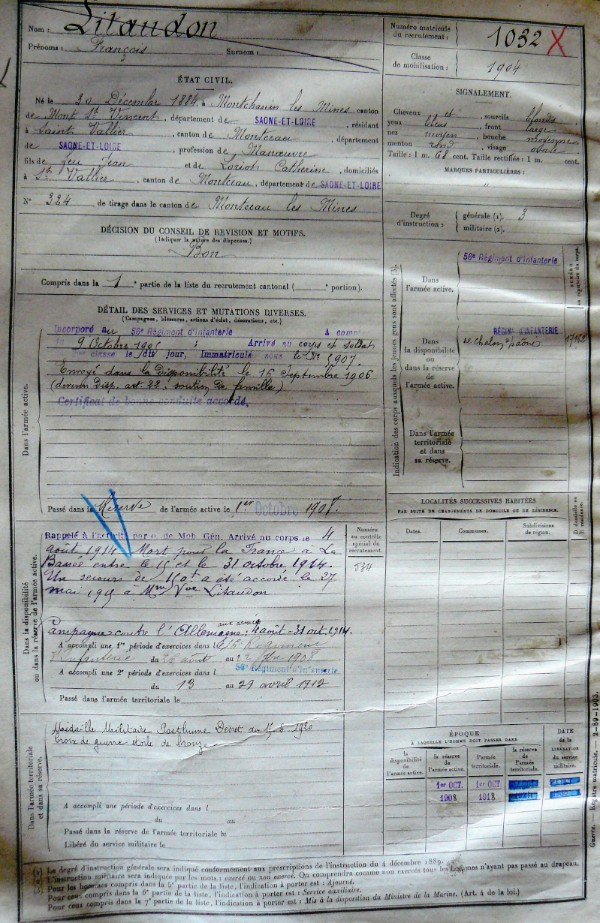 Nom : Litaudon
Prénoms : François Surnom :
Numéro matricule du recrutement : 1032 X
Classe de mobilisation : 1904
ÉTAT CIVIL.
Né le 30 Décembre 1884, à Montchanin les Mines canton
de Mont St Vincent, département de SAONE-ET-LOIRE, résidant
à Saint Vallier, canton de Montceau, département
de SAONE-ET-LOIRE, profession de Manœuvre
fils de feu Jean et de Loriot Catherine, domiciliés
à St Vallier, canton de Montceau, département de SAONE-ET-LOIRE
N° 324 de tirage dans le canton de Montceau les Mines
SIGNALEMENT.
Cheveux et sourcils blonds
yeux bleus, front large
nez moyen, bouche moyenne
menton rond, visage ovale
Taille : 1 m. 68 cent. Taille rectifiée : 1 m. cent.
MARQUES PARTICULIÈRES :
Degré d'instruction : générale (1). 3
militaire (2).
DÉCISION DU CONSEIL DE REVISION ET MOTIFS.
(Indiquer la nature des dispenses.)
Bon
Compris dans la 1 e partie de la liste du recrutement cantonal ( portion).
DÉTAIL DES SERVICES ET MUTATIONS DIVERSES.
(Campagnes, blessures, actions d'éclat, décorations, etc.)
Dans l'armée active.
Incorporé au 56e Régiment d'Infanterie A compter
du 9 Octobre 1905 Arrivé au corps et soldat
classe le dit jour, Immatriculé sous le N° 5907.
Envoyé dans la disponibilité le 15 Septembre 1906
art. 22 : soutien de famille)
Certificat de bonne conduite accordé.
Passé dans la Réserve de l'armée active le 1er Octobre 1908.
Indication des corps auxquels les jeunes gens sont affectés (3).
Dans l'armée active.
56e Régiment d'Infanterie
Dans la disponibilité ou dans la réserve de l'armée active.
RÉGIMENT D'INFANTERIE
de Chalon s/Saône
Dans l'armée territoriale et dans sa réserve.
LOCALITÉS SUCCESSIVES HABITÉES
PAR SUITE DE CHANGEMENTS DE DOMICILE OU DE RÉSIDENCE.
Dates. Communes. Subdivisions de région.
Dans la disponibilité ou dans la réserve de l'armée active.
Numéro au contrôle spécial du recrutement.
Rappelé à l'activité par o. de Mob. Gén. Arrivé au corps le 4
août 1914. Mort pour la France à La
Bassée entre le 15 et le 31 octobre 1914.
Un secours de 150f a été accordé le 27
mai 1915 à Mme Vve Litaudon
Campagne contre l'Allemagne : aux armées 4 août - 31 oct. 1914.
A accompli une 1re période d'exercices dans l
d'Infanterie du août au 1908
A accompli une 2e période d'exercices dans l 56e Régiment d'Infanterie
du 13 au 29 avril 1912
Passé dans l'armée territoriale le
Dans l'armée territoriale et dans sa réserve.
Médaille Militaire Posthume Décret du 1920
Croix de guerre étoile de bronze
A accompli une période d'exercices dans l
du au
Passé dans la réserve de l'armée territoriale le
Libéré du service militaire le
ÉPOQUE
À LAQUELLE L'HOMME DOIT PASSER DANS
la disponibilité de l'armée active. la réserve de l'armée active. l'armée territoriale. la réserve de l'armée territoriale.
DATE de la LIBÉRATION du service militaire.
1er OCT. 1908
1er OCT. 1918
(1) Le degré d'instruction générale sera indiqué conformément aux prescriptions de l'instruction du 4 décembre 1889.
(2) L'instruction militaire sera indiquée par les mots : exercé ou non exercé. On comprendra comme non exercés tous les hommes n'ayant pas passé au drapeau.
Pour les hommes compris dans la 5e partie de la liste, l'indication à porter est : Ajourné.
Pour ceux compris dans la 6e partie de la liste, l'indication à porter est : Service auxiliaire.
Pour ceux compris dans la 7e partie de la liste, l'indication à porter est : Mis à la disposition du Ministre de la Marine. (Art. 4 de la loi.)